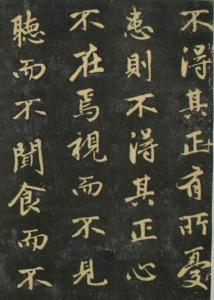 不得其正有所憂
患則不得其正心
不在焉視而不見
聽而不聞食而不